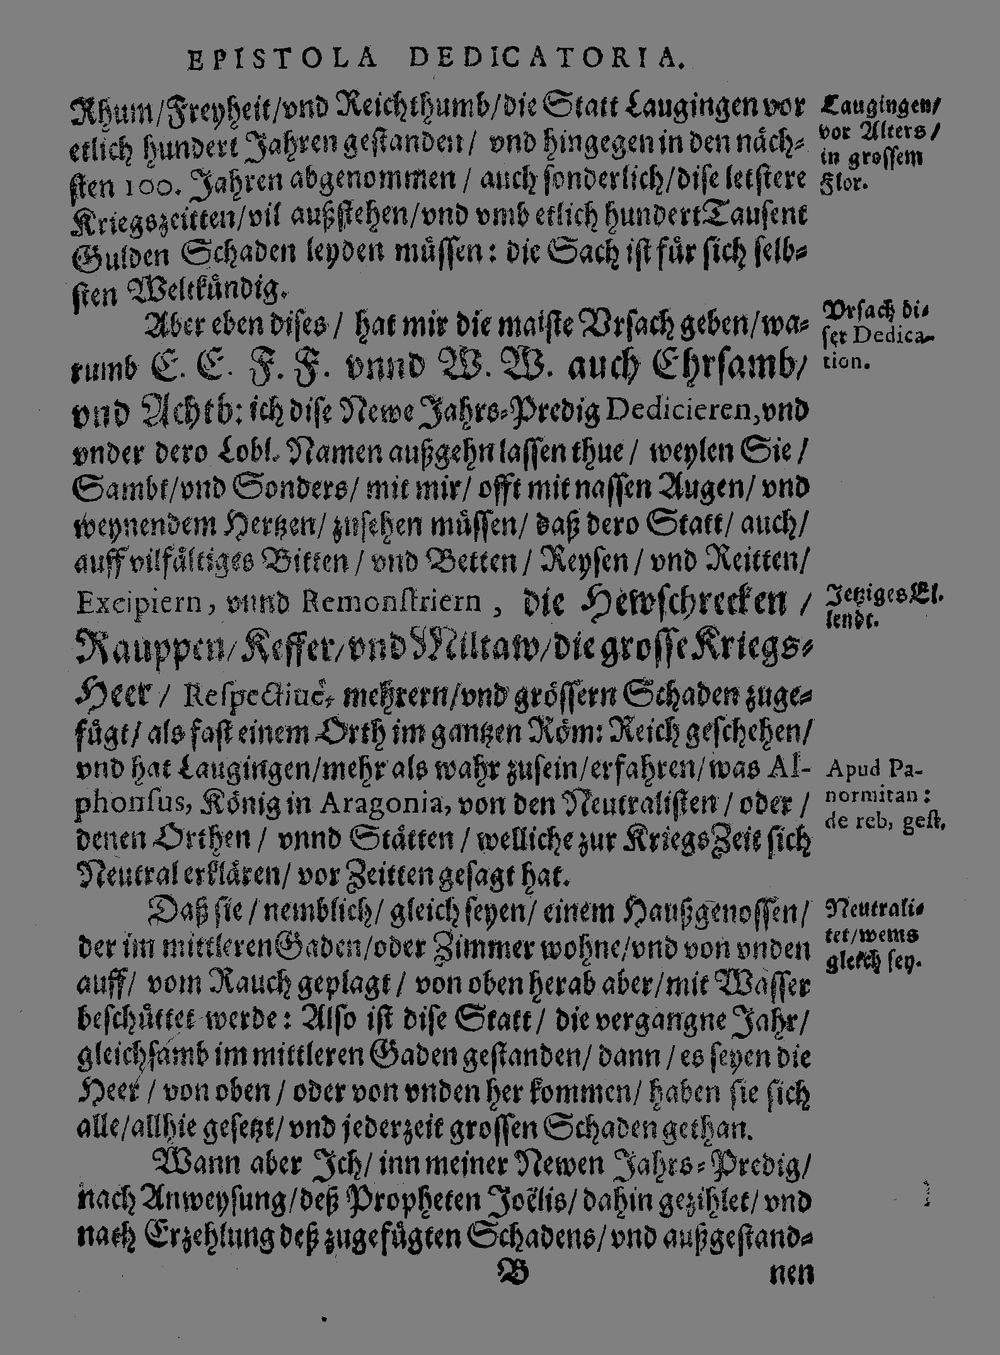 EPISTOLA DEDICATORIA.
Rhum/Freyheit/vnd Reichthumb/die Statt Laugingen vor
etlich hundert Jahren gestanden/ vnd hingegen in den näch-
sten 100. Jahren abgenommen / auch sonderlich/dise letstere
Kriegszeitten/vil außstehen/vnd vmb etlich hundert Tausent
Gulden Schaden leyden müssen: die Sach ist für sich selb-
sten Weltkündig.
Laugingen/
vor Alters /
in grossem
Flor.
Aber eben dises / hat mir die maiste Vrsach geben/wa-
rumb E. E. F. F. vnnd W. W. auch Ehrsamb/
vnd Achtb: ich dise Newe Jahrs-Predig Dedicieren, vnd
vnder dero Lobl. Namen außgehn lassen thue / weylen Sie /
Sambt/vnd Sonders/ mit mir/ offt mit nassen Augen/ vnd
weynendem Hertzen/ zusehen müssen/ daß dero Statt/ auch/
auff vilfältiges Bitten / vnd Betten / Reysen / vnd Reitten/
Excipiern, vnnd Remonstriern, die Hewschrecken /
Rauppen/Keffer/vnd Miltaw/die grosse Kriegs-
Heer / Respectiuè, mehrern/vnd grössern Schaden zuge-
fügt/ als fast einem Orth im gantzen Röm: Reich geschehen/
vnd hat Laugingen/mehr als wahr zusein/erfahren/was Al-
phonsus, König in Aragonia, von den Neutralisten / oder /
denen Orthen / vnnd Stätten / welliche zur Kriegs Zeit sich
Neutral erklären/ vor Zeitten gesagt hat.
Vrsach di-
ser Dedica-
tion.
Jetziges El-
lendt.
Apud Pa-
normitan:
de reb, gest.
Daß sie / nemblich/ gleich seyen/ einem Haußgenossen/
der im mittleren Gaden/oder Zimmer wohne/vnd von vnden
auff/ vom Rauch geplagt / von oben herab aber/mit Wasser
beschüttet werde: Also ist dise Statt/ die vergangne Jahr/
gleichsamb im mittleren Gaden gestanden/ dann / es seyen die
Heer / von oben / oder von vnden her kommen/ haben sie sich
alle/allhie gesetzt/ vnd jederzeit grossen Schaden gethan.
Neutrali-
tet/wems
gleich sey.
Wann aber Ich/ inn meiner Newen Jahrs-Predig/
nach Anweysung/deß Propheten Joëlis/ dahin gezihlet/ vnd
nach Erzehlung deß zugefügten Schadens/ vnd außgestand-
B nen